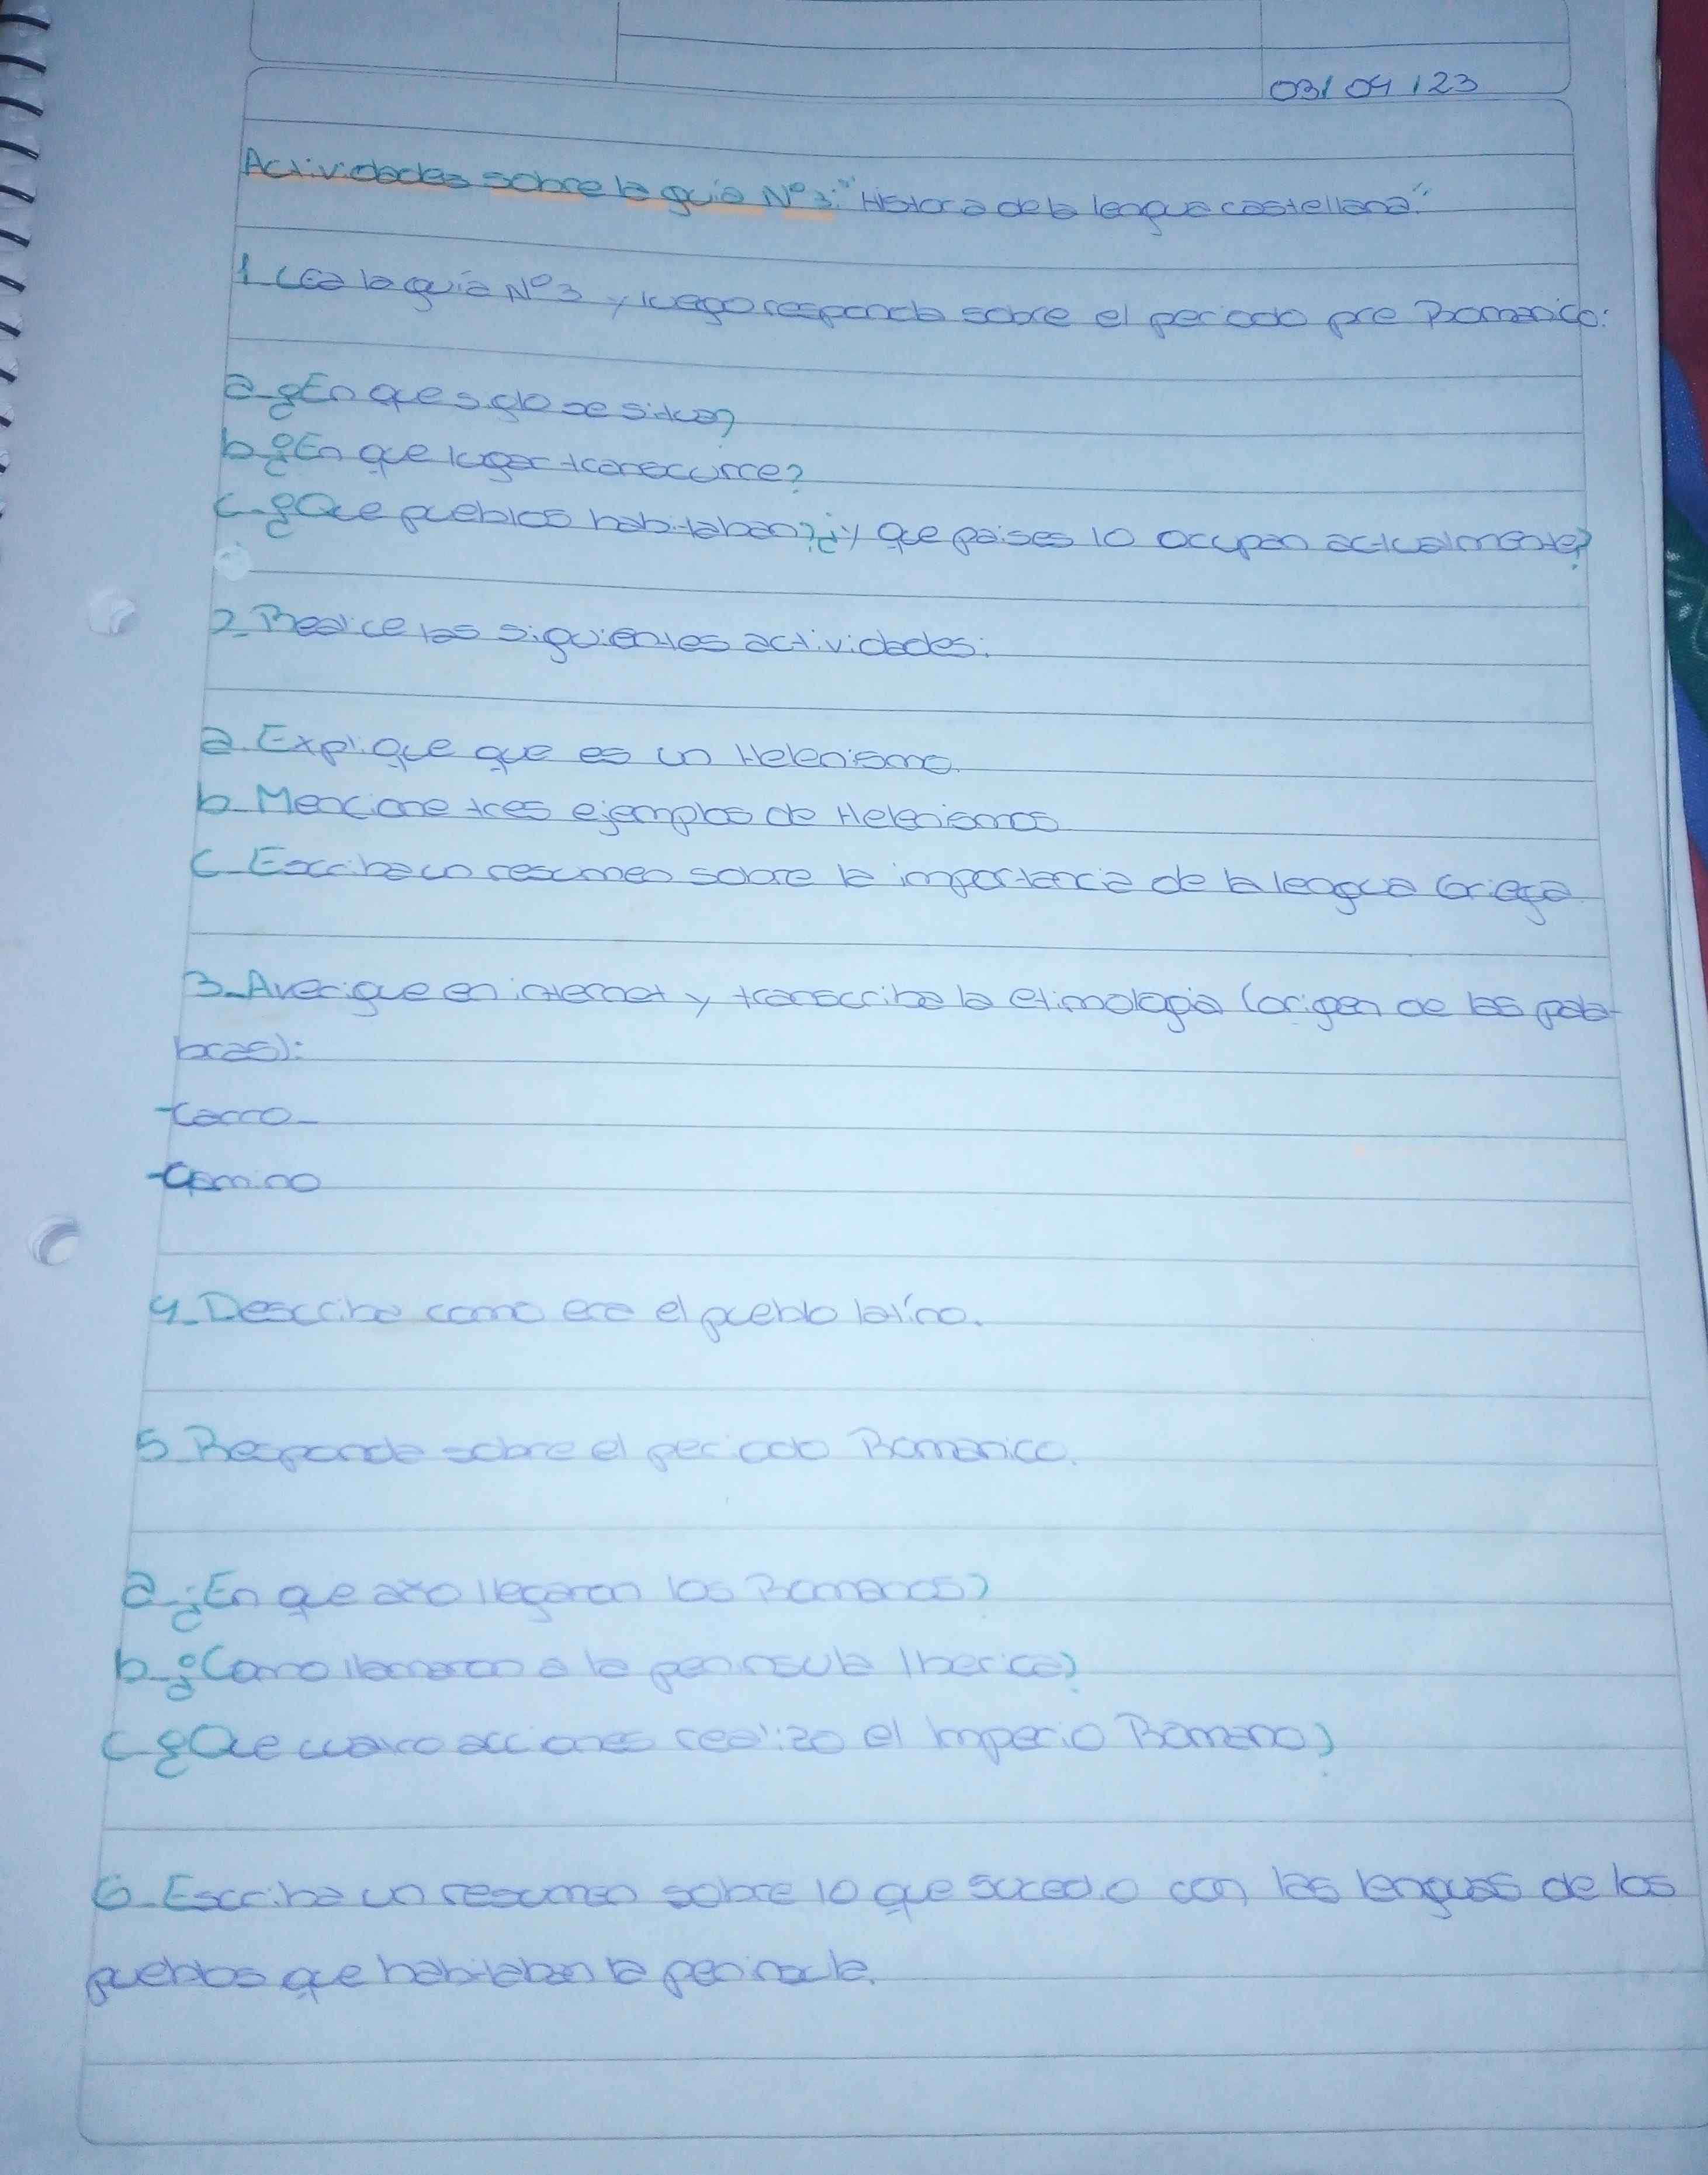 03/04/23
Actividades sobre la guía N°3: "Historia de la lengua castellana."
1. Lea la guía N°3 y luego responda sobre el periodo pre Romanico:
a. ¿En que siglo se situa?
b. ¿En que lugar transcurre?
c. ¿Que pueblos habitaban? ¿y que paises lo ocupan actualmente?
2. Realice las siguientes actividades:
a. Explique que es un Helenismo.
b. Mencione tres ejemplos de Helenismos
c. Escriba un resumen sobre la importancia de la lengua Griega.
3. Averigue en internet y transcriba la etimología (origen de las pala-
bras):
-Carro-
-Camino
4. Describa como era el pueblo latino.
5. Responde sobre el periodo Romanico.
a. ¿En que año llegaron los Romanos?
b. ¿Como llamaron a la peninsula Iberica?
c. ¿Que cuatro acciones realizo el Imperio Romano?
6. Escriba un resumen sobre lo que sucedio con las lenguas de los
pueblos que habitaban la peninsula.